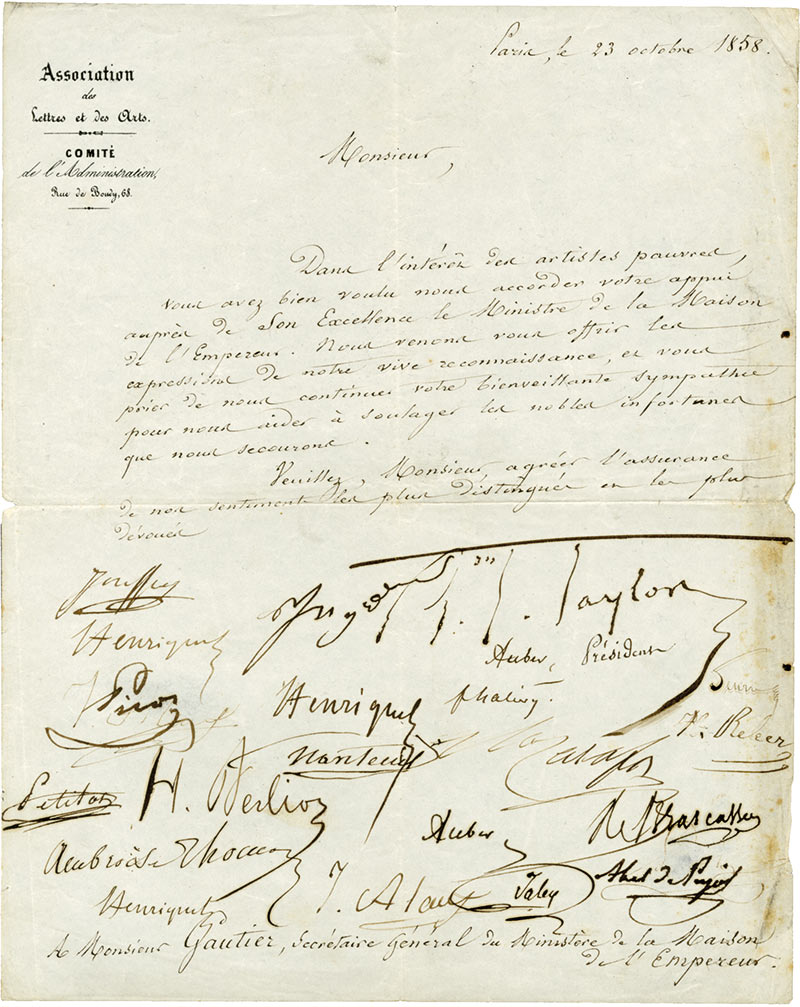 Paris, le 23 octobre 1858.
Association
des
Lettres et des Arts.
COMITÉ
de l'Administration,
Rue de Bondy, 68.
Monsieur,
Dans l'intérêt des artistes pauvres,
vous avez bien voulu nous accorder votre appui
auprès de Son Excellence le Ministre de la Maison
de l'Empereur. Nous venons vous offrir les
expressions de notre vive reconnaissance, et vous
prier de nous continuer votre bienveillante sympathie
pour nous aider à soulager les nobles infortunes
que nous secourons.
Veuillez, Monsieur, agréer l'assurance
de nos sentiments les plus distingués et les plus
dévoués
Jouffroy
Bon J. Taylor
Henriquel
Auber, Président
Picot
Henriquel
f halévy.
Nanteuil
H. Reber
Petitot
H. Berlioz
Auber
R. Brascassat
Ambroise Thomas
J. Alaux
Abel de Pujol
Henriquel
A Monsieur Gautier, Secrétaire Général du Ministère de la Maison
de l'Empereur.